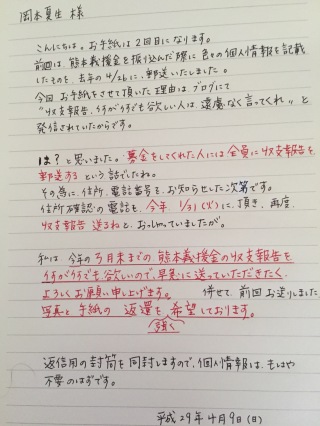 岡本夏生 様
こんにちは。お手紙は2回目になります。
前回は、熊本義援金を振り込んだ際に色々の個人情報を記載
したものを、去年の4/26に、郵送いたしました。
今回、お手紙をさせて頂いた理由はブログにて
"収支報告、何が何でも欲しい人は遠慮なく言ってくれ"と
発信されていたからです。
は?と思いました。募金をしてくれた人には全員に収支報告を
郵送する という話でしたね。
その為に、住所、電話番号を、お知らせした次第です。
住所確認の電話を、今年 1/31(火)に、頂き、再度、
収支報告 送るねと、おっしゃっていましたが。
私は、今年の5月末までの熊本義援金の収支報告を
何が何でも欲しいので、早急に送っていただきたく、
よろしくお願い申し上げます。 併せて、前回お送りしました
写真と手紙の返還を希望しております。
強く
返信用の封筒を同封しますので、個人情報は、もはや
不要のはずです。
平成29年4月9日(日)